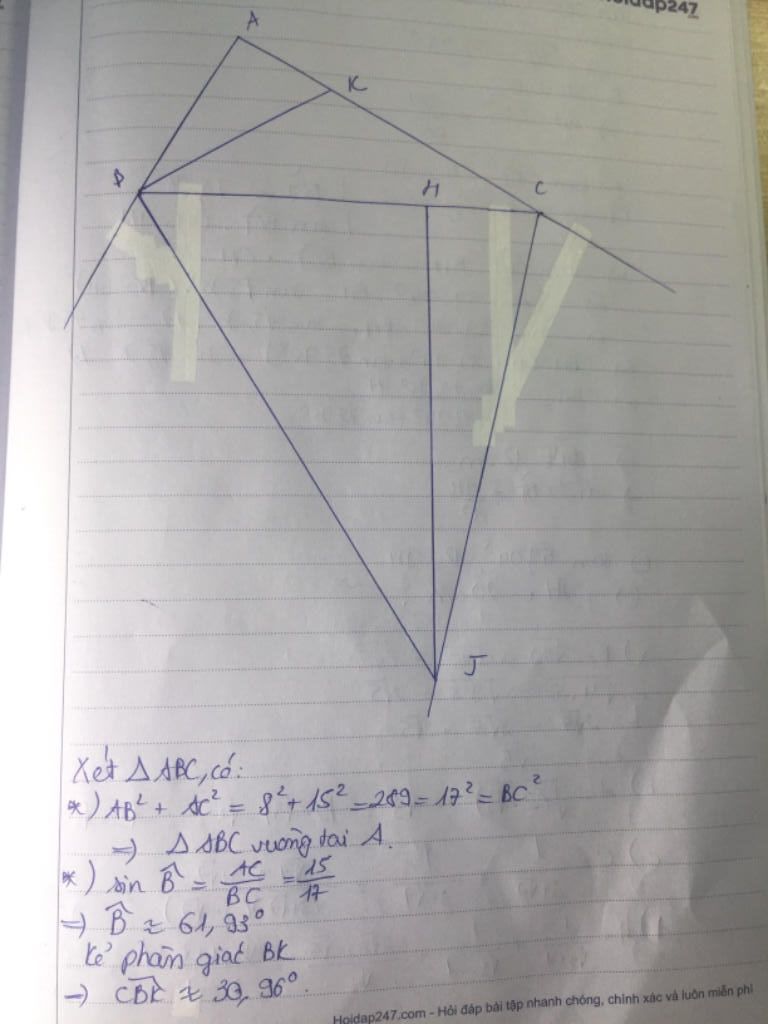 Hoidap247
A
K
B
H
C
J
Xét Δ ABC, có:
*) AB² + AC² = 8² + 15² = 289 = 17² = BC²
=) Δ ABC vuông tại A.
*) sin B̂ = AC/BC = 15/17
=) B̂ ≈ 61,93°
Kẻ phân giác BK
=) CBK̂ ≈ 30,96°.
Hoidap247.com - Hỏi đáp bài tập nhanh chóng, chính xác và luôn miễn phí